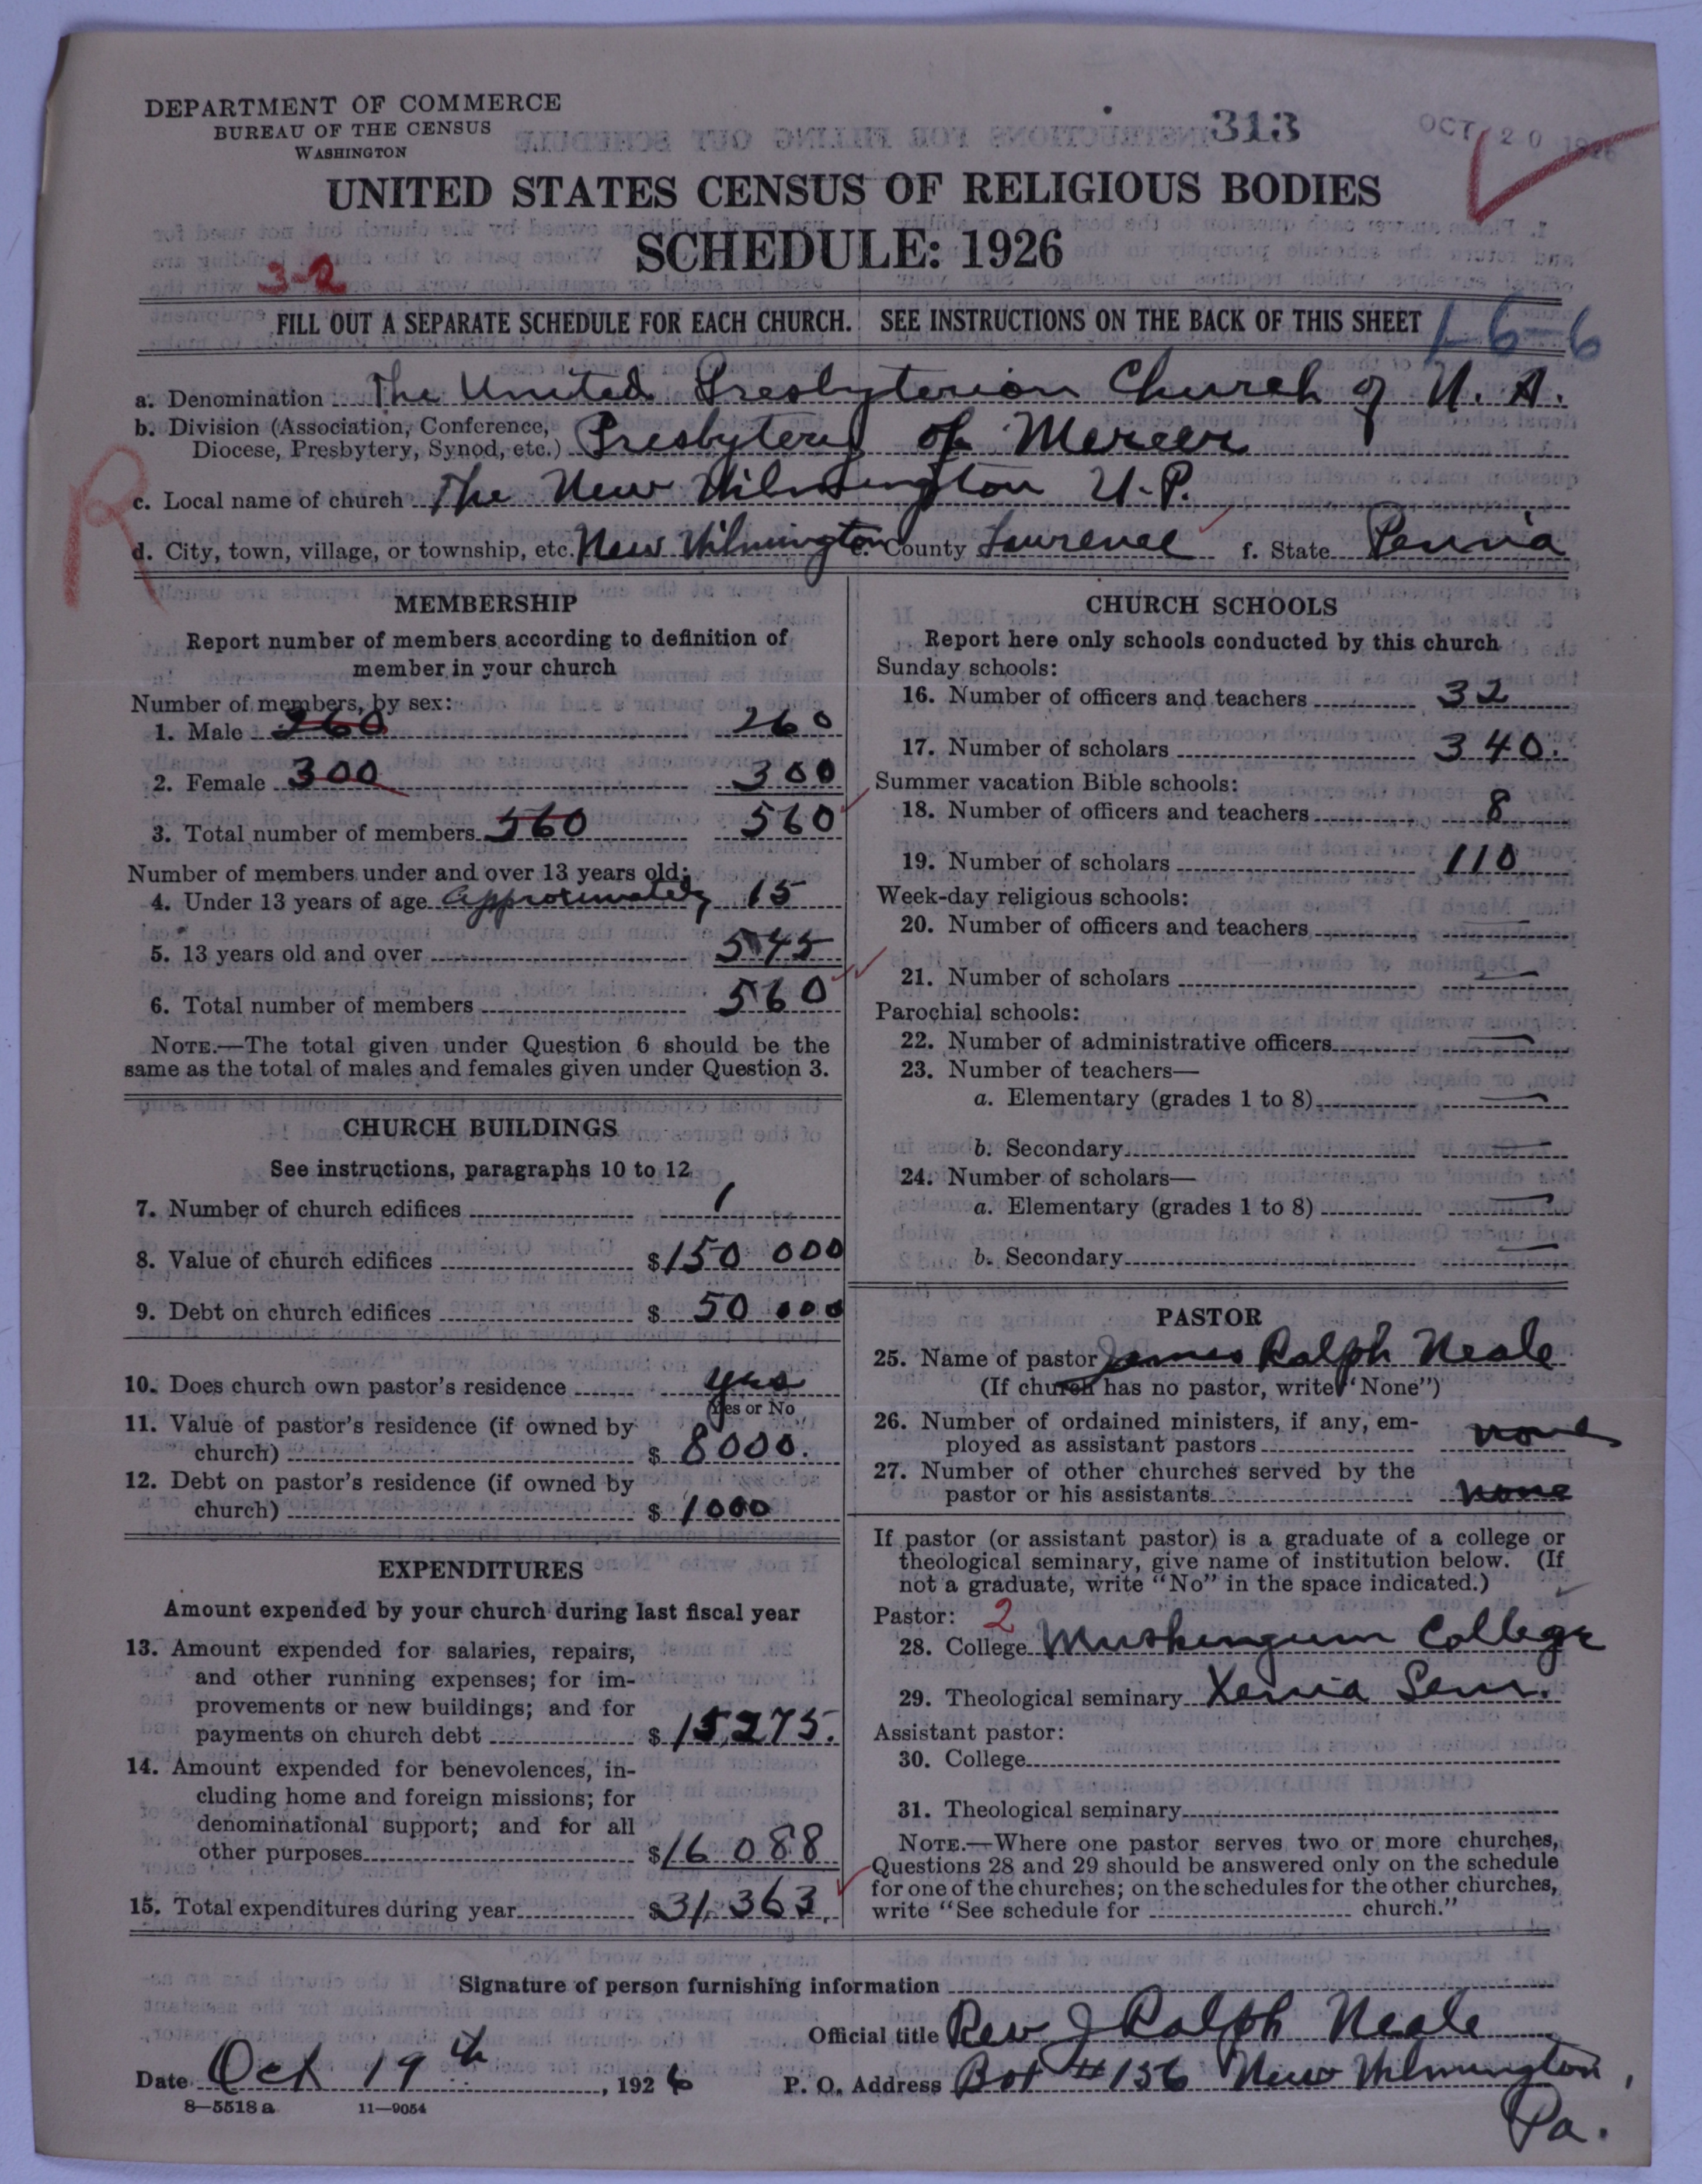 DEPARTMENT OF COMMERCE
BUREAU OF THE CENSUS
WASHINGTON
313
OCT 20 1926
UNITED STATES CENSUS OF RELIGIOUS BODIES
SCHEDULE: 1926
3-2
FILL OUT A SEPARATE SCHEDULE FOR EACH CHURCH. SEE INSTRUCTIONS ON THE BACK OF THIS SHEET
1-6-6
a. Denomination The United Presbyterian Church of N. A.
b. Division (Association, Conference,
Diocese, Presbytery, Synod, etc.) Presbytery of Mercer
R
c. Local name of church The New Wilmington U.P.
d. City, town, village, or township, etc. New Wilmington e. County Lawrence f. State Penna
MEMBERSHIP
Report number of members according to definition of
member in your church
Number of members, by sex:
1. Male 260 260
2. Female 300 300
3. Total number of members 560 560
Number of members under and over 13 years old:
4. Under 13 years of age approximately 15
5. 13 years old and over 545
6. Total number of members 560
NOTE.—The total given under Question 6 should be the
same as the total of males and females given under Question 3.
CHURCH BUILDINGS
See instructions, paragraphs 10 to 12
7. Number of church edifices 1
8. Value of church edifices $150 000
9. Debt on church edifices $ 50 000
10. Does church own pastor's residence yes
(Yes or No
11. Value of pastor's residence (if owned by
church) $ 8000.
12. Debt on pastor's residence (if owned by
church) $ 1000
EXPENDITURES
Amount expended by your church during last fiscal year
13. Amount expended for salaries, repairs,
and other running expenses; for im-
provements or new buildings; and for
payments on church debt $ 15,275.
14. Amount expended for benevolences, in-
cluding home and foreign missions; for
denominational support; and for all
other purposes $16 088
15. Total expenditures during year $31,363.
CHURCH SCHOOLS
Report here only schools conducted by this church
Sunday schools:
16. Number of officers and teachers 32
17. Number of scholars 340.
Summer vacation Bible schools:
18. Number of officers and teachers 8
19. Number of scholars 110
Week-day religious schools:
20. Number of officers and teachers —
21. Number of scholars —
Parochial schools:
22. Number of administrative officers —
23. Number of teachers—
a. Elementary (grades 1 to 8) —
b. Secondary —
24. Number of scholars—
a. Elementary (grades 1 to 8) —
b. Secondary —
PASTOR
25. Name of pastor James Ralph Neale
(If church has no pastor, write "None")
26. Number of ordained ministers, if any, em-
ployed as assistant pastors none
27. Number of other churches served by the
pastor or his assistants none
If pastor (or assistant pastor) is a graduate of a college or
theological seminary, give name of institution below. (If
not a graduate, write "No" in the space indicated.)
Pastor: 2
28. College Muskingum College
29. Theological seminary Xenia Sem.
Assistant pastor:
30. College
31. Theological seminary
NOTE.—Where one pastor serves two or more churches,
Questions 28 and 29 should be answered only on the schedule
for one of the churches; on the schedules for the other churches,
write "See schedule for church."
Signature of person furnishing information
Official title Rev J Ralph Neale
Date Oct 19th, 1926 P. O. Address Box #156 New Wilmington,
Pa.
8—5518a 11—9054